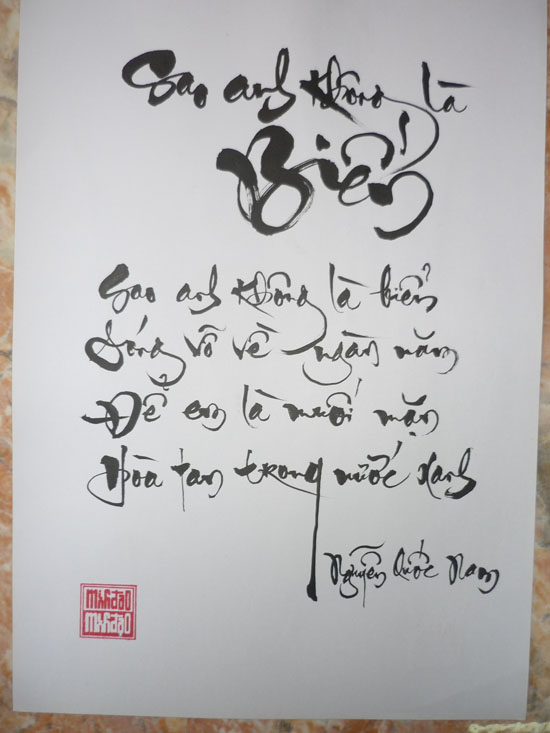 Sao anh không là
Biển
Sao anh không là biển
Sóng vỗ về ngàn năm
Để em là muối mặn
Hòa tan trong nước xanh
Nguyễn Quốc Nam
minhđạo
minhđạo